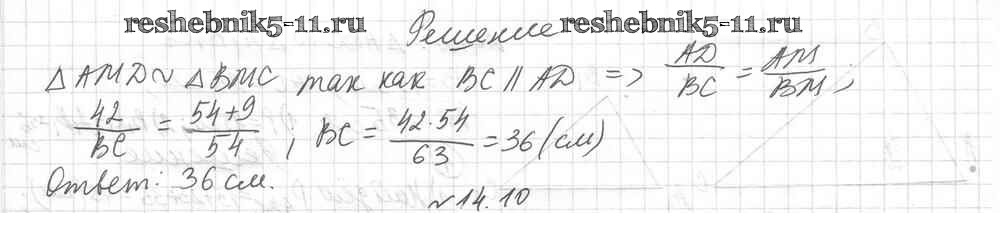 reshebnik5-11.ru Решение reshebnik5-11.ru
△AMD ~ △BMC так как BC ∥ AD => AD/BC = AM/BM;
42/BC = (54+9)/54; BC = (42·54)/63 = 36 (см)
Ответ: 36 см.
№14.10